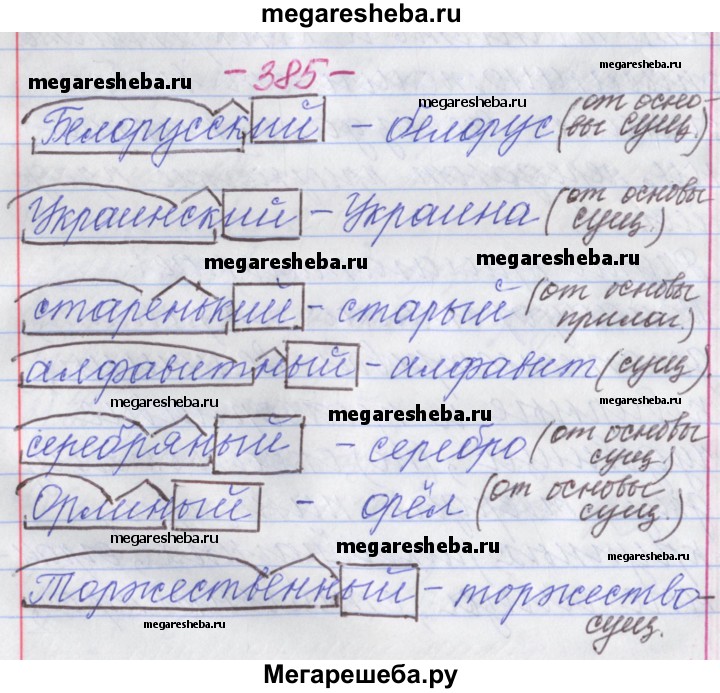 megaresheba.ru
- 385 -
megaresheba.ru
megaresheba.ru
megaresheba.ru
Белорусский - белорус (от осно-
вы сущ.)
Украинский - Украина (от основы
сущ.)
megaresheba.ru
megaresheba.ru
старенький - старый (от основы
прилаг.)
алфавитный - алфавит (сущ).
megaresheba.ru
megaresheba.ru
megaresheba.ru
серебряный - серебро (от основы
сущ.)
Орлиный - орёл (от основы
сущ.)
megaresheba.ru
megaresheba.ru
megaresheba.ru
Торжественный - торжество-
сущ.
megaresheba.ru
Мегарешеба.ру